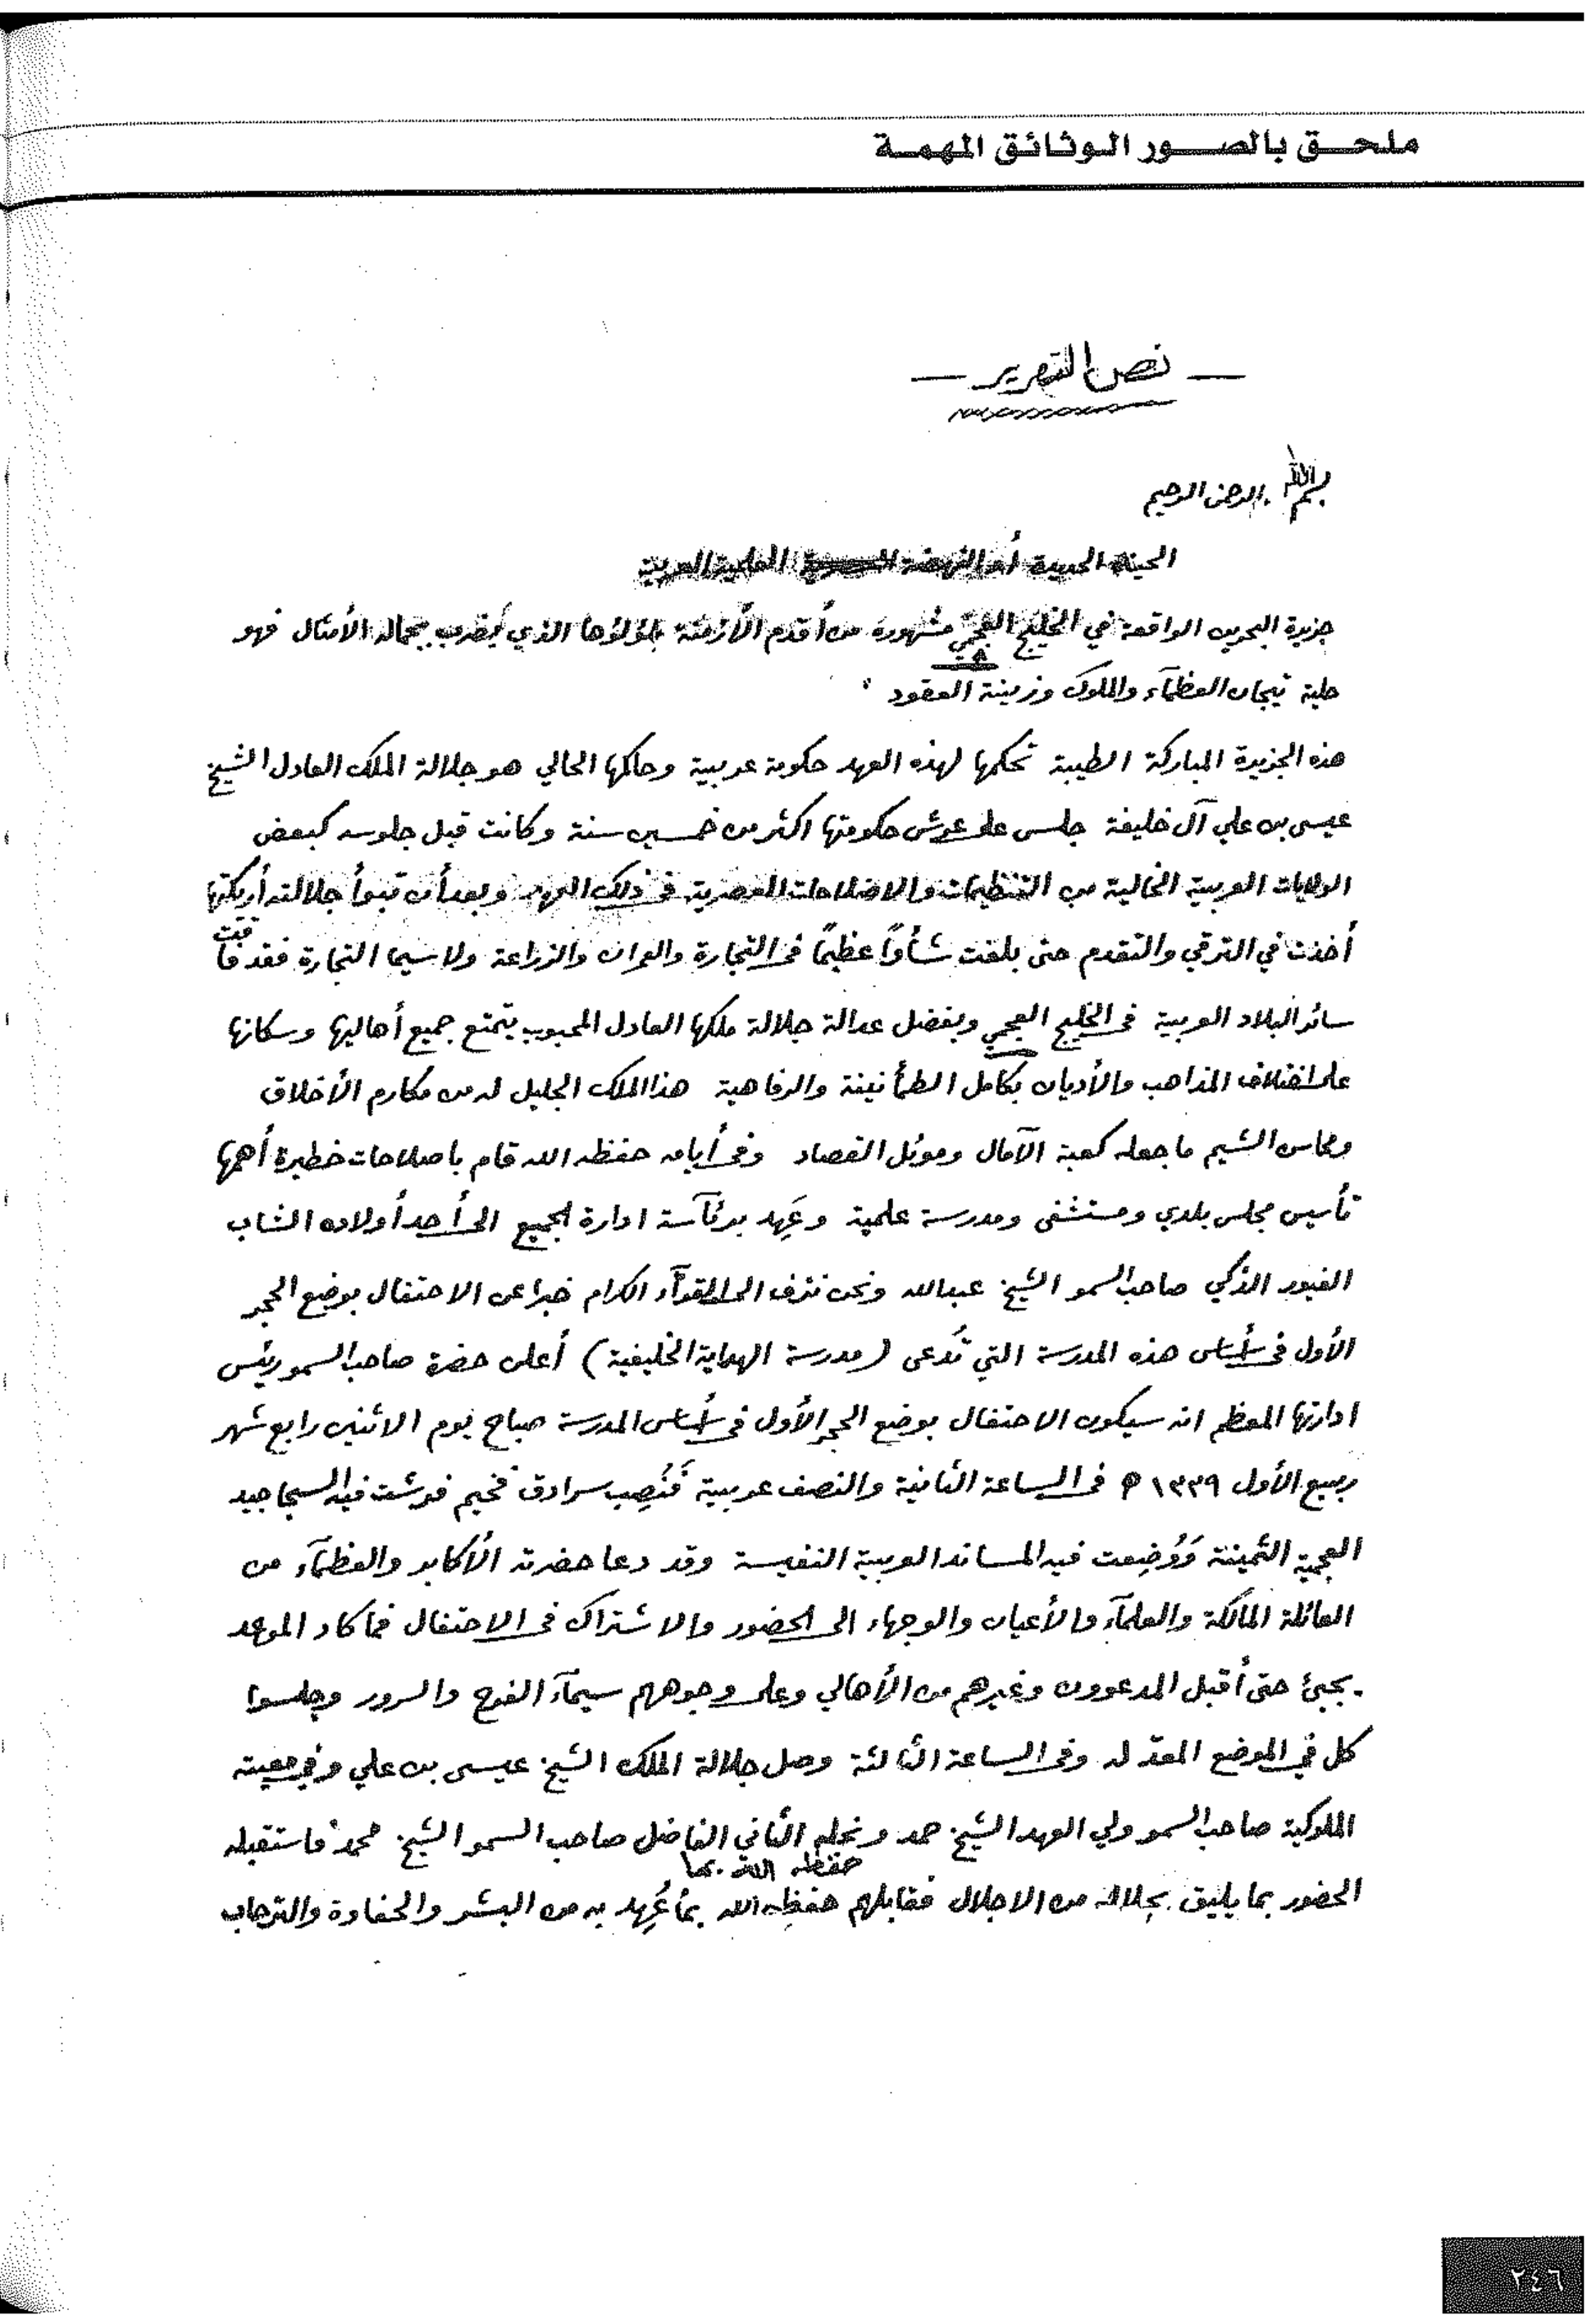 ملحق بالصور الوثائق المهمة
— نص التقرير —
بسم الله الرحمن الرحيم
الجديدة أو النهضة العلمية العربية
جزيرة البحرين الواقعة في الخليج العجمي مشهورة من أقدم الأزمنة بلؤلؤها الذي يُضرب بجماله الأمثال فهو
حلية تيجان العظمآء والملوك وزينة العقود
هذه الجزيرة المباركة الطيبة تحكمها لهذه العهد حكومة عربية وحاكمها الحالي هو جلالة الملك العادل الشيخ
عيسى بن علي آل خليفة جلس على عرش حكومتها اكثر من خمسين سنة وكانت قبل جلوسه كبعض
الولايات العربية الخالية من التنظيمات والاصلاحات العصرية في ذلك العهد وبعد أن تبوأ جلالته أريكتها
أخذت في الترقي والتقدم حتى بلغت شأوًا عظيمًا في التجارة والعمران والزراعة ولا سيما التجارة فقد فاقت
سائر البلاد العربية في الخليج العجمي وبفضل عدالة جلالة ملكها العادل المحبوب يتمتع جميع أهاليها وسكانها
على اختلاف المذاهب والأديان بكامل الطمأنينة والرفاهية هذا الملك الجليل له من مكارم الأخلاق
ومحاسن الشيم ما جعله كعبة الآمال وموئل القصاد وفي أيامه حفظه الله قام باصلاحات خطيرة أهمها
تأسيس مجلس بلدي ومستشفى ومدرسة علمية وعَهِد برئآسة ادارة الجميع الى أحد أولاده الشاب
الغيور الذكي صاحب السمو الشيخ عبدالله ونحن نزف الى القرآء الكرام خبرا عن الاحتفال بوضع الحجر
الأول في أساس هذه المدرسة التي تُدعى (مدرسة الهداية الخليفية) أعلن حضرة صاحب السمو رئيس
ادارتها المعظم انه سيكون الاحتفال بوضع الحجر الأول في أساس المدرسة صباح يوم الاثنين رابع شهر
ربيع الأول ١٣٣٩ ه في الساعة الثانية والنصف عربية فَنُصِب سرادق فخيم فرشت فيه السجاجيد
العجمية الثمينة وَوُضِعت فيه المساند العربية النفيسة وقد دعا حضرته الأكابر والعظمآء من
العائلة المالكة والعلمآء والأعيان والوجهاء الى الحضور والاشتراك في الاحتفال فما كاد الموعد
يجيئ حتى أقبل المدعوون وغيرهم من الأهالي وعلى وجوههم سيمآء الفرح والسرور وجلسوا
كل في الموضع المعدّ له وفي الساعة الثالثة وصل جلالة الملك الشيخ عيسى بن علي وفي معيته
الملوكية صاحب السمو ولي العهد الشيخ حمد ونجله الثاني الفاضل صاحب السمو الشيخ محمد فاستقبله
حفظه الله بما
الحضور بما يليق بجلاله من الاجلال فقابلهم حفظه الله بما عُهِد به من البشر والحفاوة والترحاب
٢٤٦